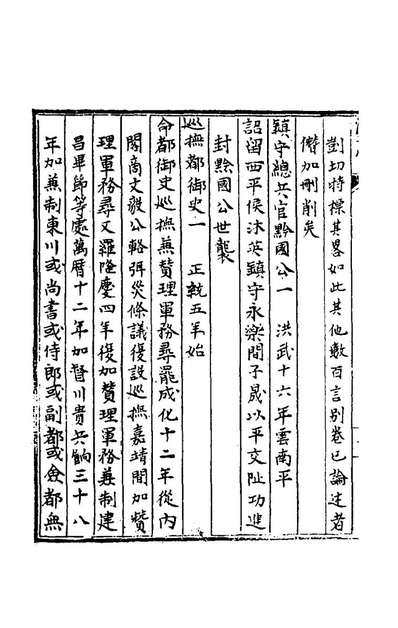 剴切特標其畧如此其他數百言別卷已論述者
僭加刪削矣
鎮守總兵官黔國公一　洪武十六年雲南平
詔留西平侯沐英鎮守永樂間子晟以平交阯功進
封黔國公世襲
巡撫都御史一　正統五年始
命都御史巡撫兼贊理軍務尋罷成化十二年從內
閣商文毅公輅弭災條議復設巡撫嘉靖間加贊
理軍務尋又罷隆慶四年復加贊理軍務兼制建
昌畢節等處萬曆十二年加督川貴兵餉三十八
年加兼制東川或尚書或侍郎或副都或僉都無